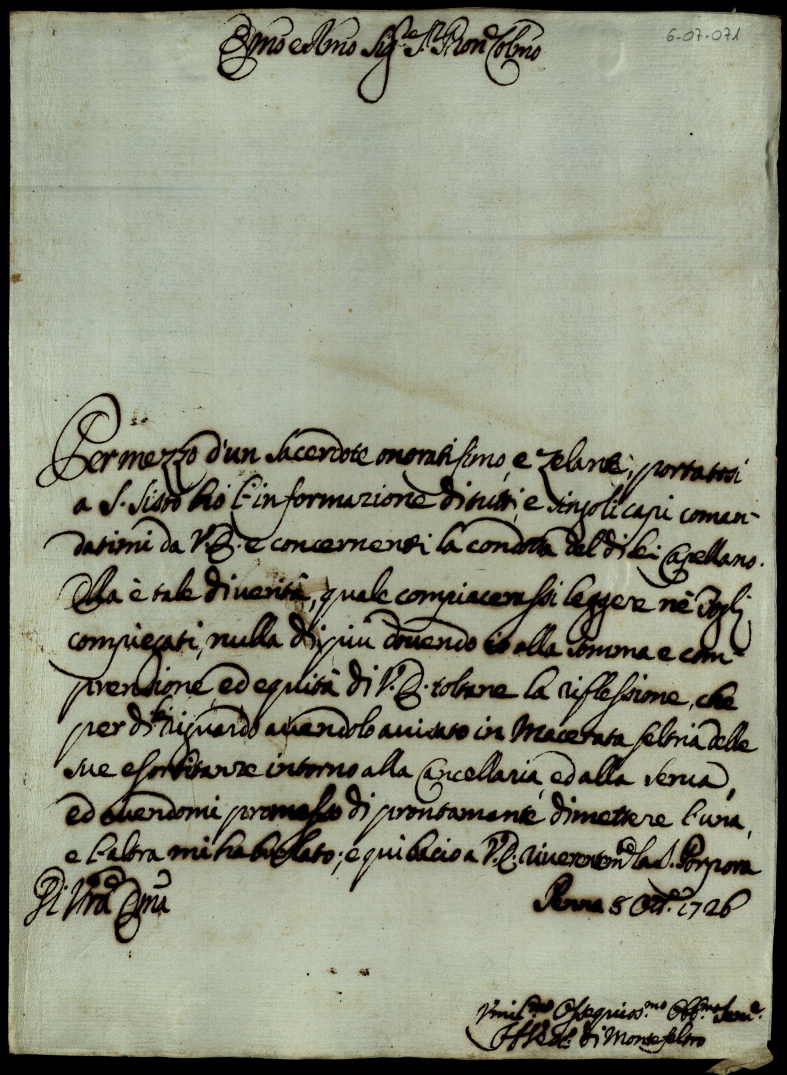 6-07-071
Em̃o e Rmo Sig.re Sr. Pron.e Colmo
Per mezzo d'un Sacerdote onoratissimo, e zelante, portatosi
a S. Sisto hò l'informazione di tutti, e singoli capi coman-
datimi da V.E. e concernenti la condotta del di lei Capellano.
Ella è tale di verità, quale compiacerassi leggere nè fogli
compiegati, nulla di più dovendo io alla somma e com-
prensione, ed equità di V.E. toltane la riflessione, che
per di riguardo avendolo avisato in Macerata feltria delle
sue esorbitanze intorno alla Cancellaria, ed alla serva,
ed avendomi promesso di prontamente dimettere l'una,
e l'altra mi ha burlato; e qui bacio a V.E. riverentem.e la S. Porpora
Di Vrã Em̃a
Penna 8 Ott.e 1726
Umil.mo Ossequios.mo Obb.mo Serv.e
di Montefeltro